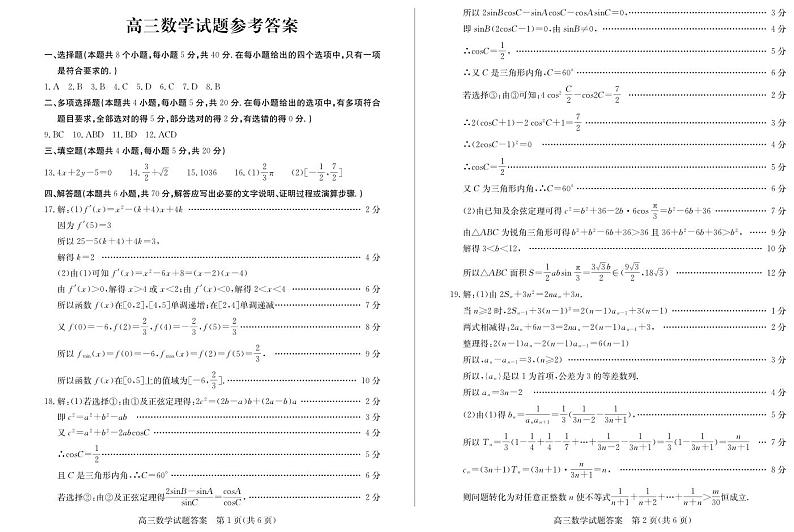 高三数学试题参考答案
一、选择题(本题共8个小题,每小题5分,共40分.在每小题给出的四个选项中,只有一项
是符合要求的.)
1.A 2.B 3.B 4.C 5.D 6.C 7.D 8.B
二、多项选择题(本题共4小题,每小题5分,共20分.在每小题给出的选项中,有多项符合
题目要求,全部选对的得5分,部分选对的得2分,有选错的得0分.)
9.BC 10.ABD 11.BD 12.ACD
三、填空题(本题共4小题,每小题5分,共20分)
13.4x+2y-5=0 14.3/2+√2 15.1036 16.(1)2/3π (2)[-1/2,7/2]
四、解答题(本题共6小题,共70分,解答应写出必要的文字说明、证明过程或演算步骤.)
17.解:(1)f′(x)=x²-(k+4)x+4k ……2分
因为f′(5)=3
所以25-5(k+4)+4k=3,
解得k=2 ……4分
(2)由(1)可知f′(x)=x²-6x+8=(x-2)(x-4)
由f′(x)>0,解得x>4或x<2;由f′(x)<0,解得2<x<4 ……6分
所以函数f(x)在[0,2],[4,5]单调递增;在[2,4]单调递减……7分
又f(0)=-6,f(2)=2/3,f(4)=-2/3,f(5)=2/3……8分
所以fmin(x)=f(0)=-6,fmax(x)=f(2)=f(5)=2/3.……9分
所以函数f(x)在[0,5]上的值域为[-6,2/3].……10分
18.解:(1)若选择①:由①及正弦定理得:2c²=(2b-a)b+(2a-b)a ……2分
即c²=a²+b²-ab ……3分
又c²=a²+b²-2abcosC ……4分
∴cosC=1/2……5分
且C是三角形内角,∴C=60°……6分
若选择②:由②及正弦定理得(2sinB-sinA)/sinC=cosA/cosC,……2分
高三数学试题答案 第1页(共6页)
所以2sinBcosC-sinAcosC-cosAsinC=0,……3分
即sinB(2cosC-1)=0,由sinB≠0,……4分
∴cosC=1/2,……5分
∴又C是三角形内角,C=60°……6分
若选择③:由③可知:4cos²C/2-cos2C=7/2……2分
∴2(cosC+1)-2cos²C+1=7/2……3分
∴(2cosC-1)²=0 ……4分
∴cosC=1/2……5分
又C为三角形内角,∴C=60°……6分
(2)由已知及余弦定理可得c²=b²+36-2b·6cosπ/3=b²-6b+36 ……7分
由△ABC为锐角三角形可得b²+b²-6b+36>36且36+b²-6b+36>b²,……9分
解得3<b<12,……10分
所以△ABC面积S=1/2absinπ/3=3√3b/2∈(9√3/2,18√3) ……12分
19.解:(1)由2Sₙ+3n²=2naₙ+3n.
当n≥2时,2Sₙ₋₁+3(n-1)²=2(n-1)aₙ₋₁+3(n-1)……1分
两式相减得:2aₙ+6n-3=2naₙ-2(n-1)aₙ₋₁+3,……2分
整理得:2(n-1)aₙ-2(n-1)aₙ₋₁=6(n-1)
所以,aₙ-aₙ₋₁=3,(n≥2)……3分
所以,{aₙ}是以1为首项,公差为3的等差数列.
所以aₙ=3n-2 ……4分
(2)由(1)得bₙ=1/(aₙaₙ₊₁)=1/3(1/(3n-2)-1/(3n+1)),……5分
所以Tₙ=1/3(1-1/4+1/4-1/7+…+1/(3n-2)-1/(3n+1))=1/3(1-1/(3n+1))=n/(3n+1) …7分
cₙ=(3n+1)Tₙ=(3n+1)·n/(3n+1)=n.……8分
则问题转化为对任意正整数n使不等式1/(n+1)+1/(n+2)+…+1/(n+n)>m/30恒成立.
高三数学试题答案 第2页(共6页)